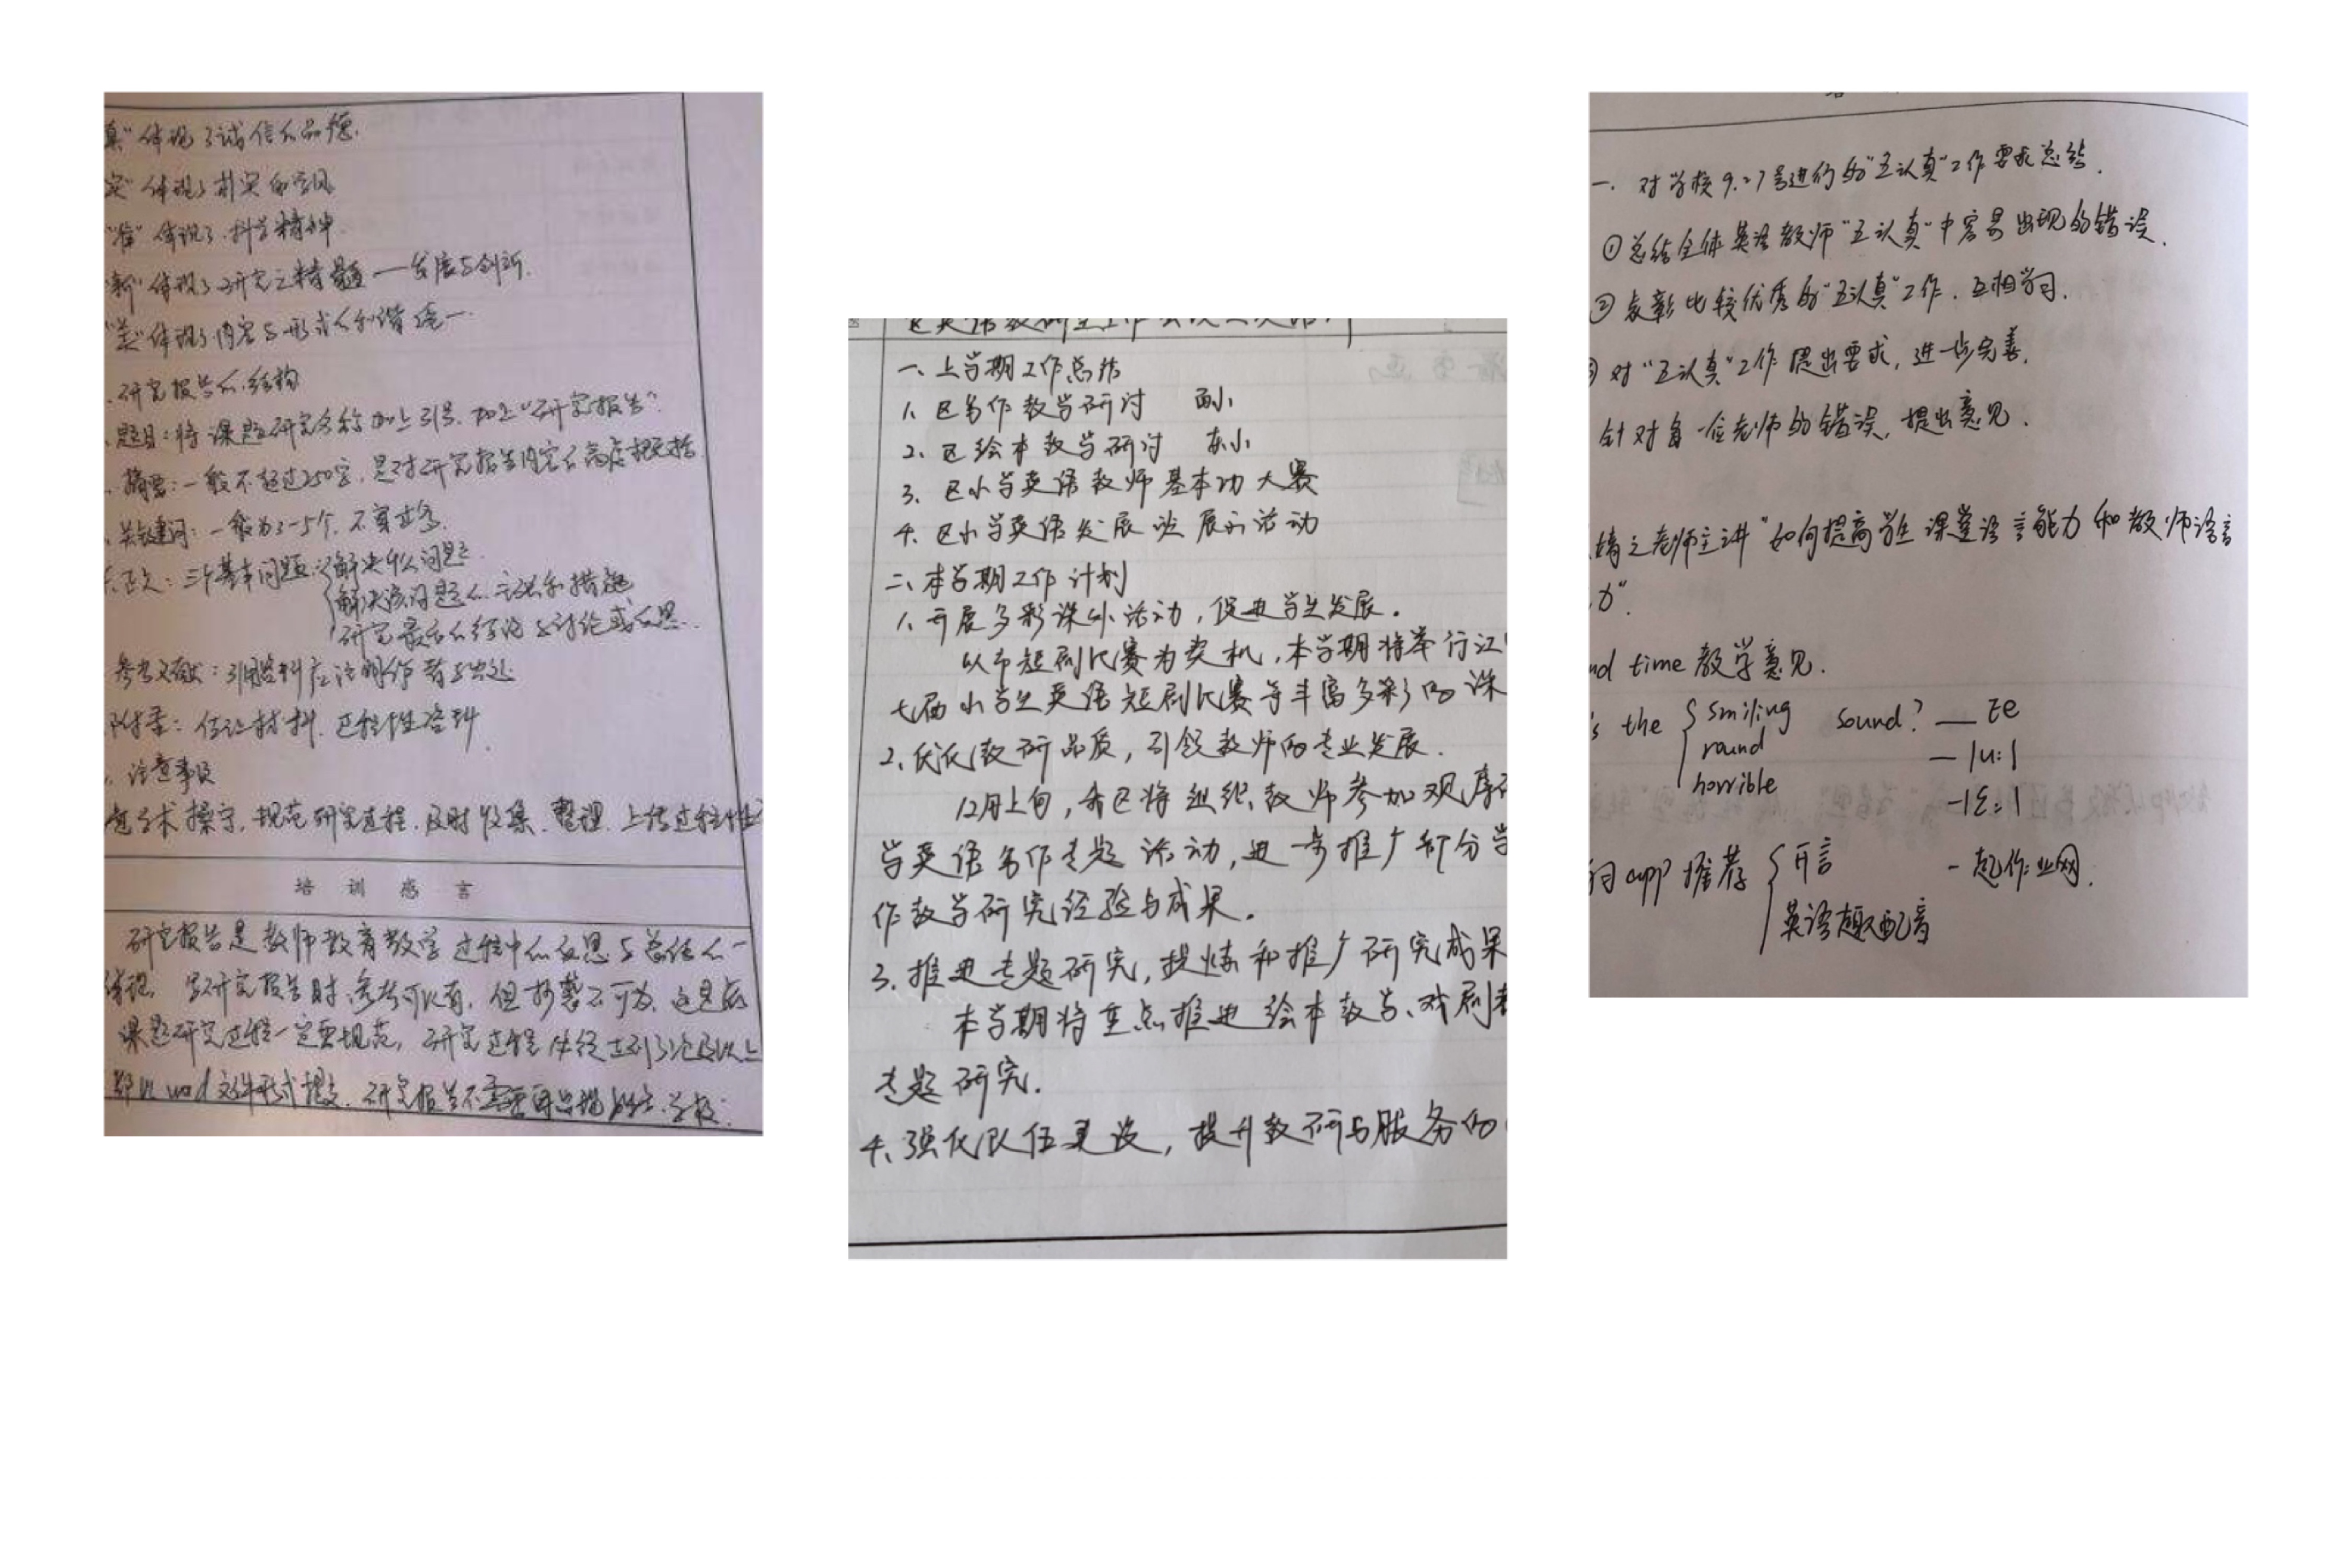 真"体现了诚信的品德.
实"体现了朴实的学风
"准"体现了科学精神.
"新"体现了研究之精髓——发展与创新.
"美"体现了内容与形式的和谐统一.
研究报告的结构
题目:将课题研究名称加上引号.加上"研究报告".
摘要:一般不超过250字,是对研究报告内容的高度概括.
关键词:一般为3-5个,不宜过多.
正文:三个基本问题 解决什么问题?
解决该问题的方法和措施
研究最后的结论与讨论或反思.
参考文献:引用资料应注明作者与出处
附录:佐证材料.过程性资料.
注意事项
学术操守,规范研究过程,及时收集、整理、上传过程性
培 训 感 言
研究报告是教师教育教学过程中的反思与总结的一
写研究报告时,参考可以有,但抄袭不可为,这是底
课题研究过程一定要规范,研究过程
word文件形式提交.研究报告不需要再出现 学校.
一、上学期工作总结
1. 区写作教学研讨 西小
2. 区绘本教学研讨 东小
3. 区小学英语教师基本功大赛
4. 区小学英语发展 展示活动
二、本学期工作计划
1. 开展多彩课外活动,促进学生发展.
以市短剧比赛为契机,本学期将举行江
七届小学生英语短剧比赛等丰富多彩的课
2. 优化教研品质,引领教师的专业发展.
12月上旬,我区将组织教师参加
学英语写作专题活动,进一步推广部分学
作教学研究经验与成果.
3. 推进专题研究,提炼和推广研究成果
本学期将重点推进绘本教学、戏剧教
专题研究.
4. 强化队伍建设,提升教研与服务的
一. 对学校9.27号进行的"五认真"工作要求总结.
①总结全体英语教师"五认真"中容易出现的错误.
②表彰比较优秀的"五认真"工作.互相学习.
对"五认真"工作提出要求,进一步完善.
针对每一位老师的错误,提出意见.
婧之老师主讲"如何提高学生课堂语言能力和教师语言
力".
nd time教学意见.
s the smiling sound? — ee
round — /u:/
horrible — /ɛ:/
习app推荐 开言 一起作业网.
英语趣配音